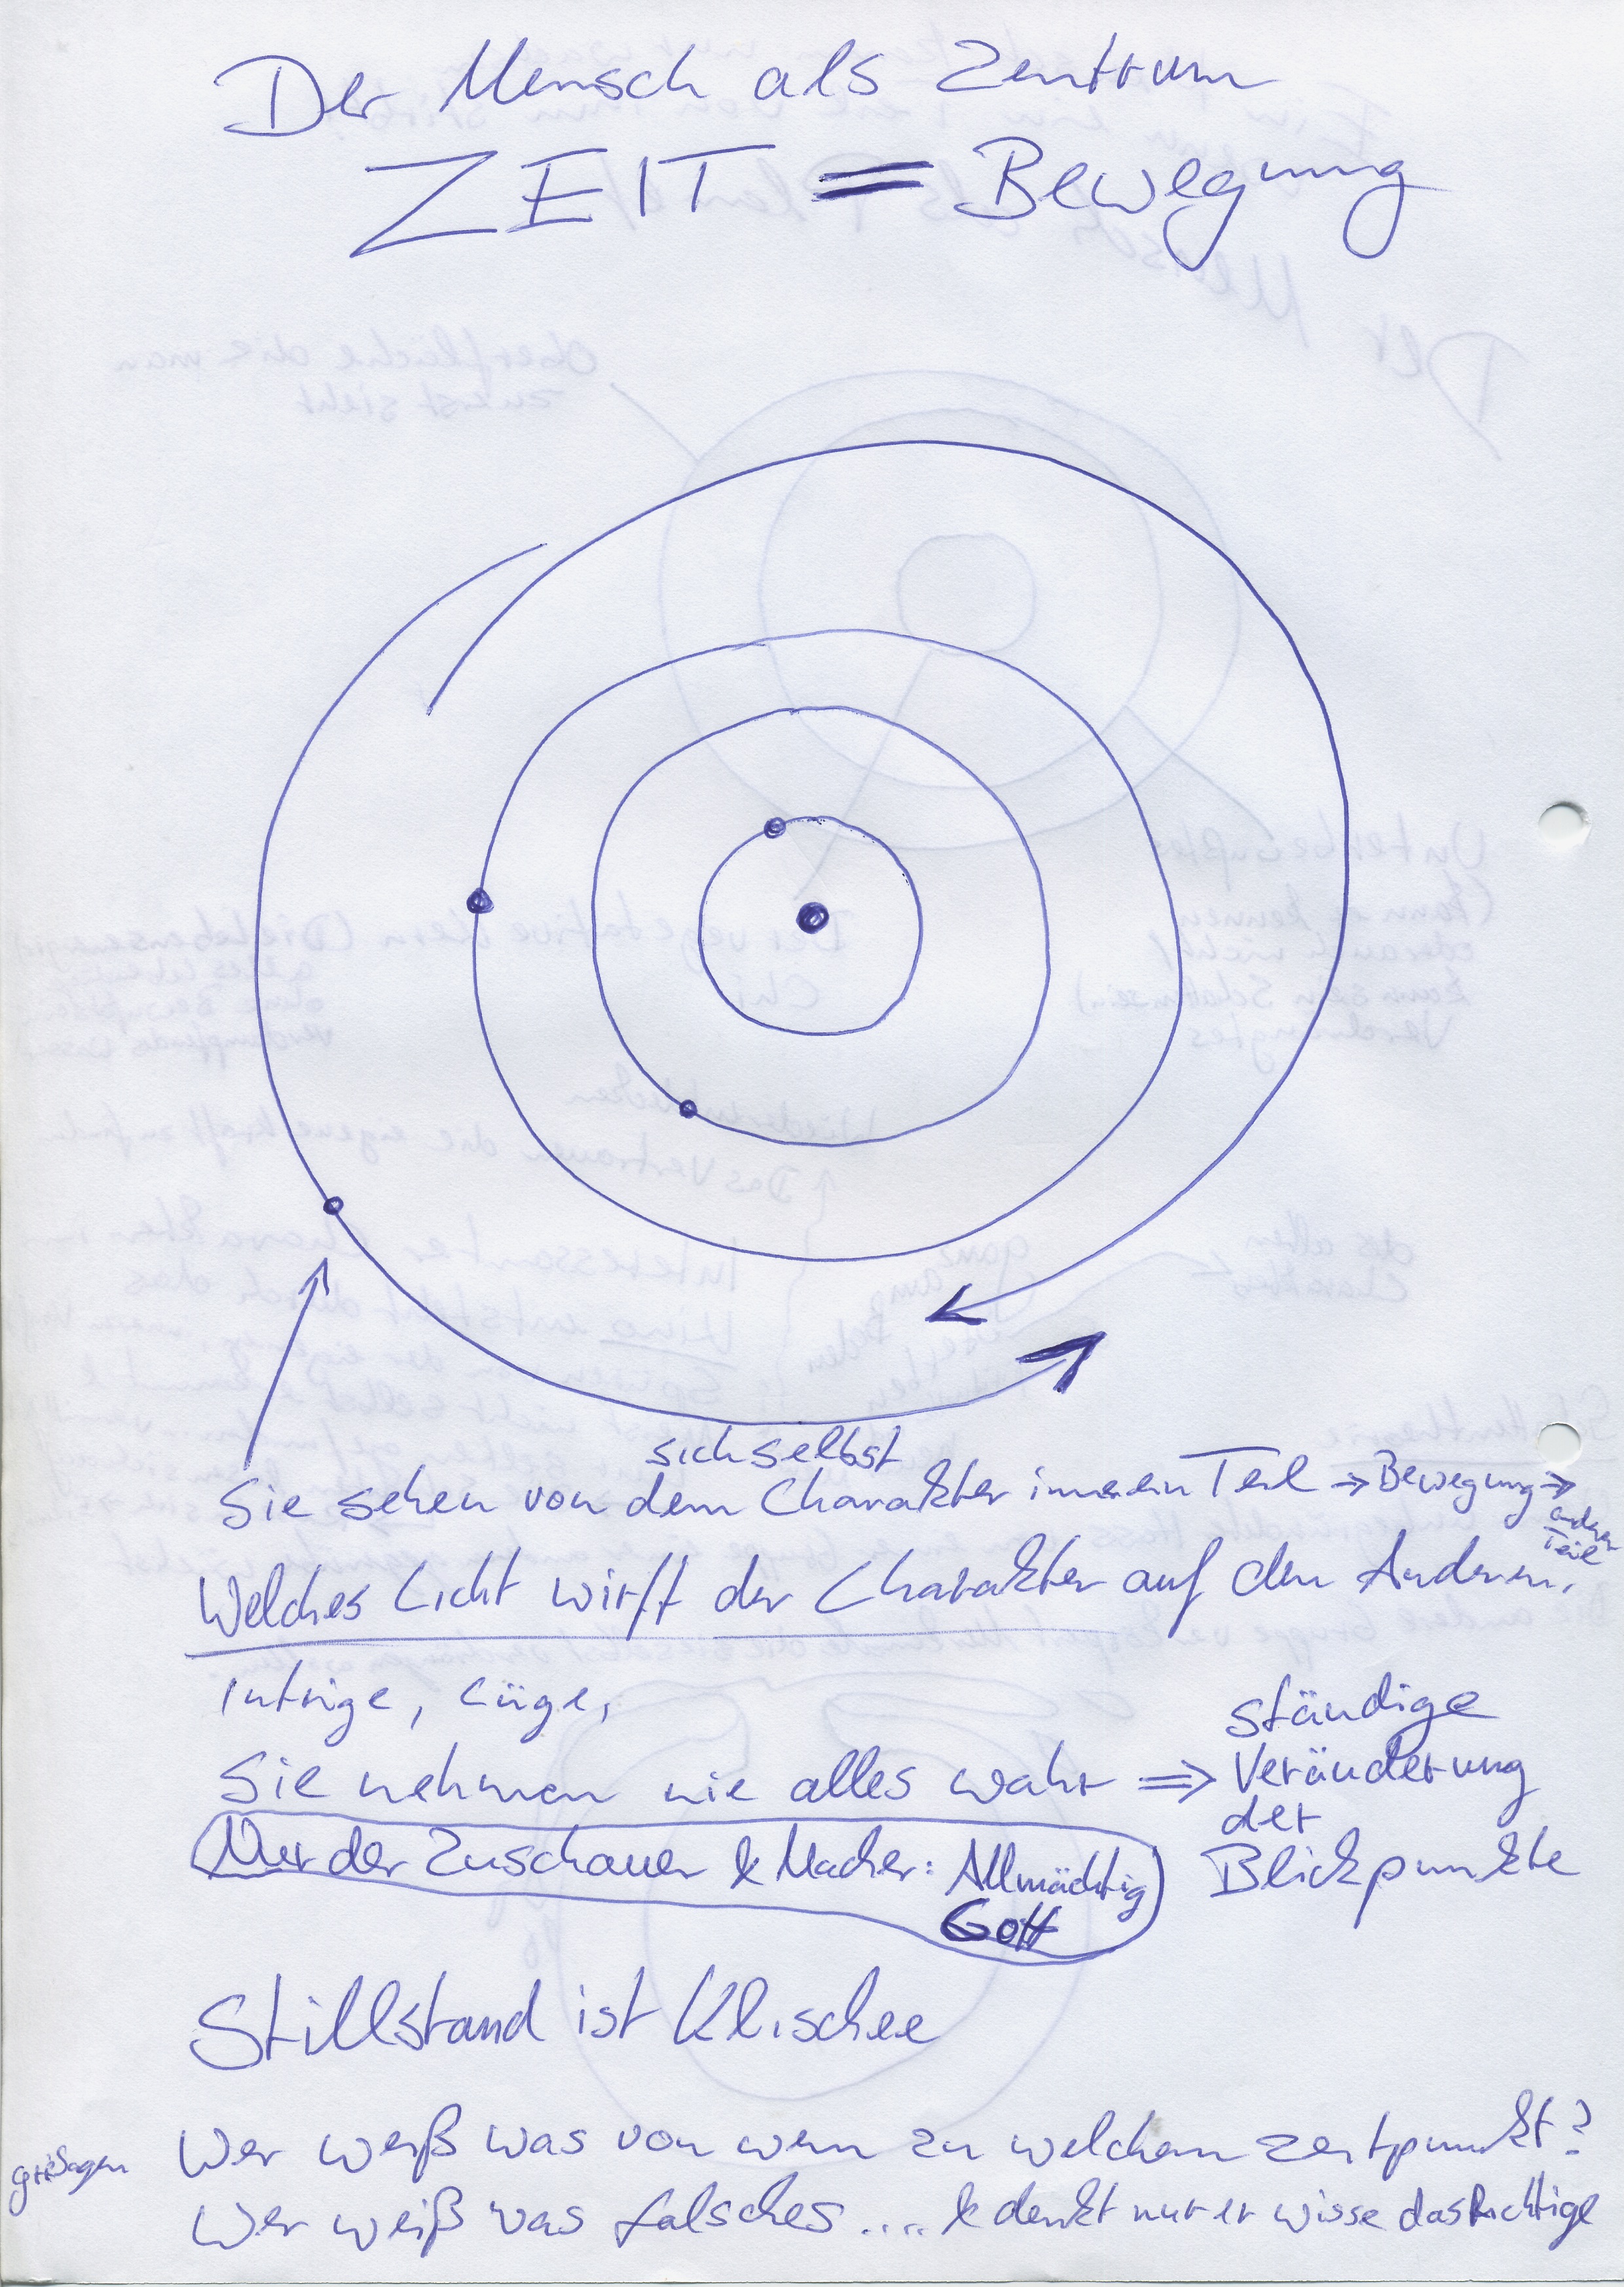 Der Mensch als Zentrum
ZEIT = Bewegung
sich selbst
Sie sehen von dem Charakter inneren Teil → Bewegung →
andern
Teil
Welches Licht wirft der Charakter auf den Anderen.
Intrige, Lüge,
Sie nehmen nie alles wahr ⇒ ständige
Veränderung
der
Blickpunkte
Nur der Zuschauer & Macher: Allmächtig
Gott
Stillstand ist Klischee
Wer weiß was von wem zu welchem Zeitpunkt?
Wer weiß was falsches .... & denkt nur er wisse das Richtige